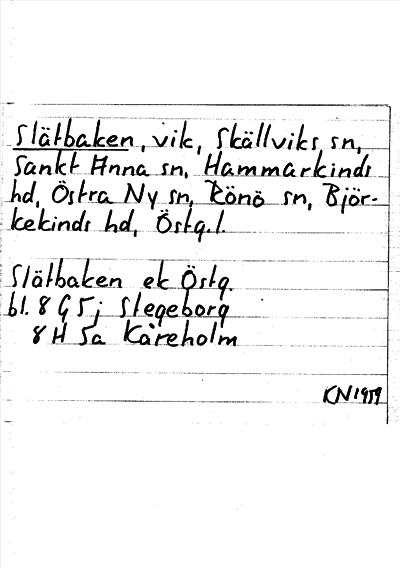 Slätbaken, vik, Skällviks sn,
Sankt Anna sn, Hammarkinds
hd, Östra Ny sn, Rönö sn, Björ-
kekinds hd, Östg.l.
Slätbaken ek Östg.
bl. 8 G 5 j Stegeborg
8 H 5a Kåreholm
KN 1959